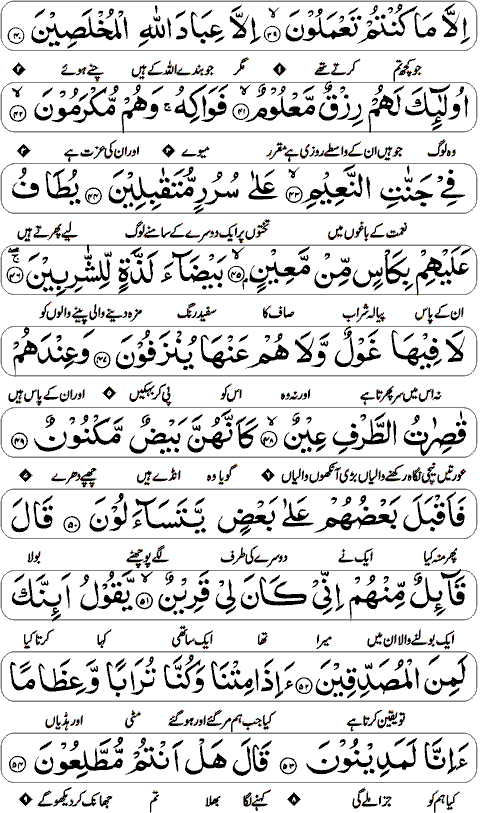 اِلَّا مَا كُنْتُمْ تَعْمَلُوْنَ ﴿۳۹﴾ اِلَّا عِبَادَ اللّٰهِ الْمُخْلَصِيْنَ ﴿۴۰﴾
جو کچھ تم کرتے تھے ۱ مگر جو بندے اللہ کے ہیں چنے ہوئے ۲
اُولٰٓئِكَ لَهُمْ رِزْقٌ مَّعْلُوْمٌ ﴿۴۱﴾ فَوَاكِهُ ۚ وَهُمْ مُّكْرَمُوْنَ ﴿۴۲﴾
وہ لوگ جو ہیں ان کے واسطے روزی ہے مقرر میوے ۳ اور ان کی عزت ہے ۴
فِيْ جَنّٰتِ النَّعِيْمِ ﴿۴۳﴾ عَلٰى سُرُرٍ مُّتَقٰبِلِيْنَ ﴿۴۴﴾ يُطَافُ
نعمت کے باغوں میں تختوں پر ایک دوسرے کے سامنے لوگ لیے پھرتے ہیں
عَلَيْهِمْ بِكَاْسٍ مِّنْ مَّعِيْنٍ ﴿۴۵﴾ بَيْضَآءَ لَذَّةٍ لِّلشّٰرِبِيْنَ ﴿۴۶﴾
ان کے پاس پیالہ شراب صاف کا سفید رنگ مزہ دینے والی پینے والوں کو
لَا فِيْهَا غَوْلٌ وَّلَا هُمْ عَنْهَا يُنْزَفُوْنَ ﴿۴۷﴾ وَعِنْدَهُمْ
نہ اس میں سر پھرتا ہے اور نہ وہ اس کو پی کر بہکیں ۵ اور ان کے پاس ہیں
قٰصِرٰتُ الطَّرْفِ عِيْنٌ ﴿۴۸﴾ كَاَنَّهُنَّ بَيْضٌ مَّكْنُوْنٌ ﴿۴۹﴾
عورتیں نیچی نگاہ رکھنے والیاں بڑی آنکھوں والیاں ۶ گویا وہ انڈے ہیں چھپے دھرے
فَاَقْبَلَ بَعْضُهُمْ عَلٰى بَعْضٍ يَّتَسَآءَلُوْنَ ﴿۵۰﴾ قَالَ
پھر منہ کیا ایک نے دوسرے کی طرف لگے پوچھنے بولا
قَآئِلٌ مِّنْهُمْ اِنِّيْ كَانَ لِيْ قَرِيْنٌ ﴿۵۱﴾ يَّقُوْلُ اَئِنَّكَ
ایک بولنے والا ان میں میرا تھا ایک ساتھی کہا کرتا کیا
لَمِنَ الْمُصَدِّقِيْنَ ﴿۵۲﴾ ءَاِذَا مِتْنَا وَكُنَّا تُرَابًا وَّعِظَامًا
تو یقین کرتا ہے کیا جب ہم مر گئے اور ہو گئے مٹی اور ہڈیاں
ءَاِنَّا لَمَدِيْنُوْنَ ﴿۵۳﴾ قَالَ هَلْ اَنْتُمْ مُّطَّلِعُوْنَ ﴿۵۴﴾
کیا ہم کو جزا ملے گی ۸ کہنے لگا بھلا تم جھانک کر دیکھو گے ۹